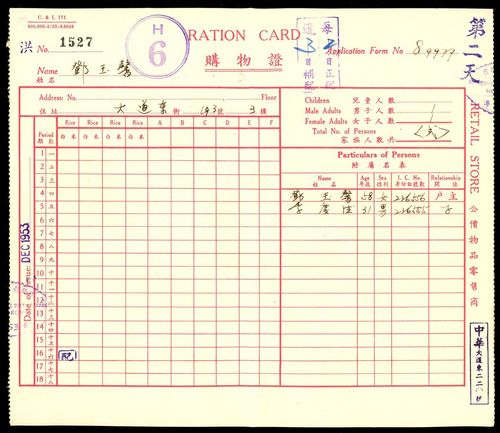 C. & I. 171
H
6
RATION CARD
購物證
洪 No. 1527
Application Form No 89977
Name 鄧玉馨
姓名
每逢
3
日正配
日補配
第二天
Address: No. Floor
住址 大道東 街 193 號 3 樓
Children 兒童人數
Male Adults 男子人數 1
Female Adults 女子人數 1
Total No. of Persons
家族人數共
Period 期數
Rice Rice Rice Rice
白米 白米 白米 白米
A B C D E F
Particulars of Persons
附屬名表
Name 姓名 Age 年歲 Sex 性別 I. C. No. 身份証號數 Relationship 關係
鄧玉馨 58 女 226556 户主
李慶 31 男 226555 子
1 一
2 二
3 三
4 四
5 五
6 六
7 七
8 八
9 九
10 十
11 十一
12 十二
13 十三
14 十四
15 十五
16 十六
17 十七
18 十八
配
Date of Issue DEC 1953
RETAIL STORE 公價物品零售商
中華
大道東二二〇號